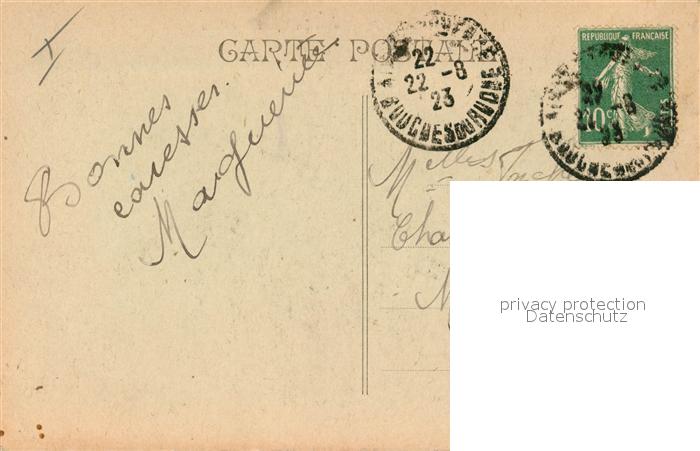 CARTE POSTALE
22
22 -8
23
BOUCHES DU RHONE
REPUBLIQUE FRANÇAISE
10c
Bonnes
caresses.
Marguerite
Melles
privacy protection
Datenschutz